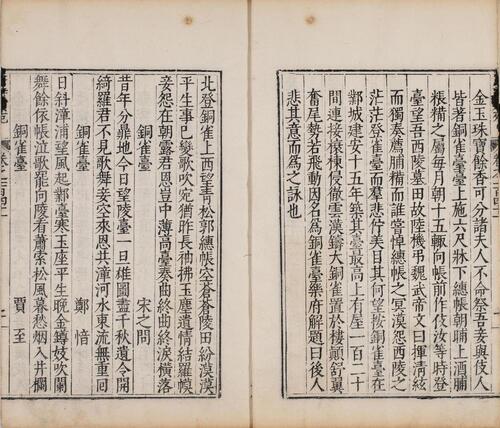 金玉珠寶餘香可分諸夫人不命祭吾妾與伎人
皆著銅雀臺臺上施六尺牀下繐帳朝晡上酒脯
粻糒之屬每月朝十五輒向帳前作伎汝等時登
臺望吾西陵墓田故陸機弔魏武帝文曰揮清絃
而獨奏薦脯糒而誰嘗悼繐帳之冥漠怨西陵之
茫茫登雀臺而羣悲佇美目其何望按銅雀臺在
鄴城建安十五年築其臺最高上有屋一百二十
間連接榱棟侵徹雲漢鑄大銅雀置於樓顛舒翼
奮尾勢若飛動因名為銅雀臺樂府解題曰後人
悲其意而為之詠也
北登銅雀上西望青松郭繐帳空蒼蒼陵田紛漠漠
平生事已變歌吹宛猶昨長袖拂玉塵遺情結羅幙
妾怨在朝露君恩豈中薄高臺奏曲終曲終淚橫落
銅雀臺 宋之問
昔年分鼎地今日望陵臺一旦雄圖盡千秋遺令開
綺羅君不見歌舞妾空來恩共漳河水東流無重回
銅雀臺 鄭愔
日斜漳浦望風起鄴臺寒玉座平生晚金鐏妓吹闌
舞餘依帳泣歌罷向陵看蕭索松風暮愁烟入井欄
銅雀臺 賈至